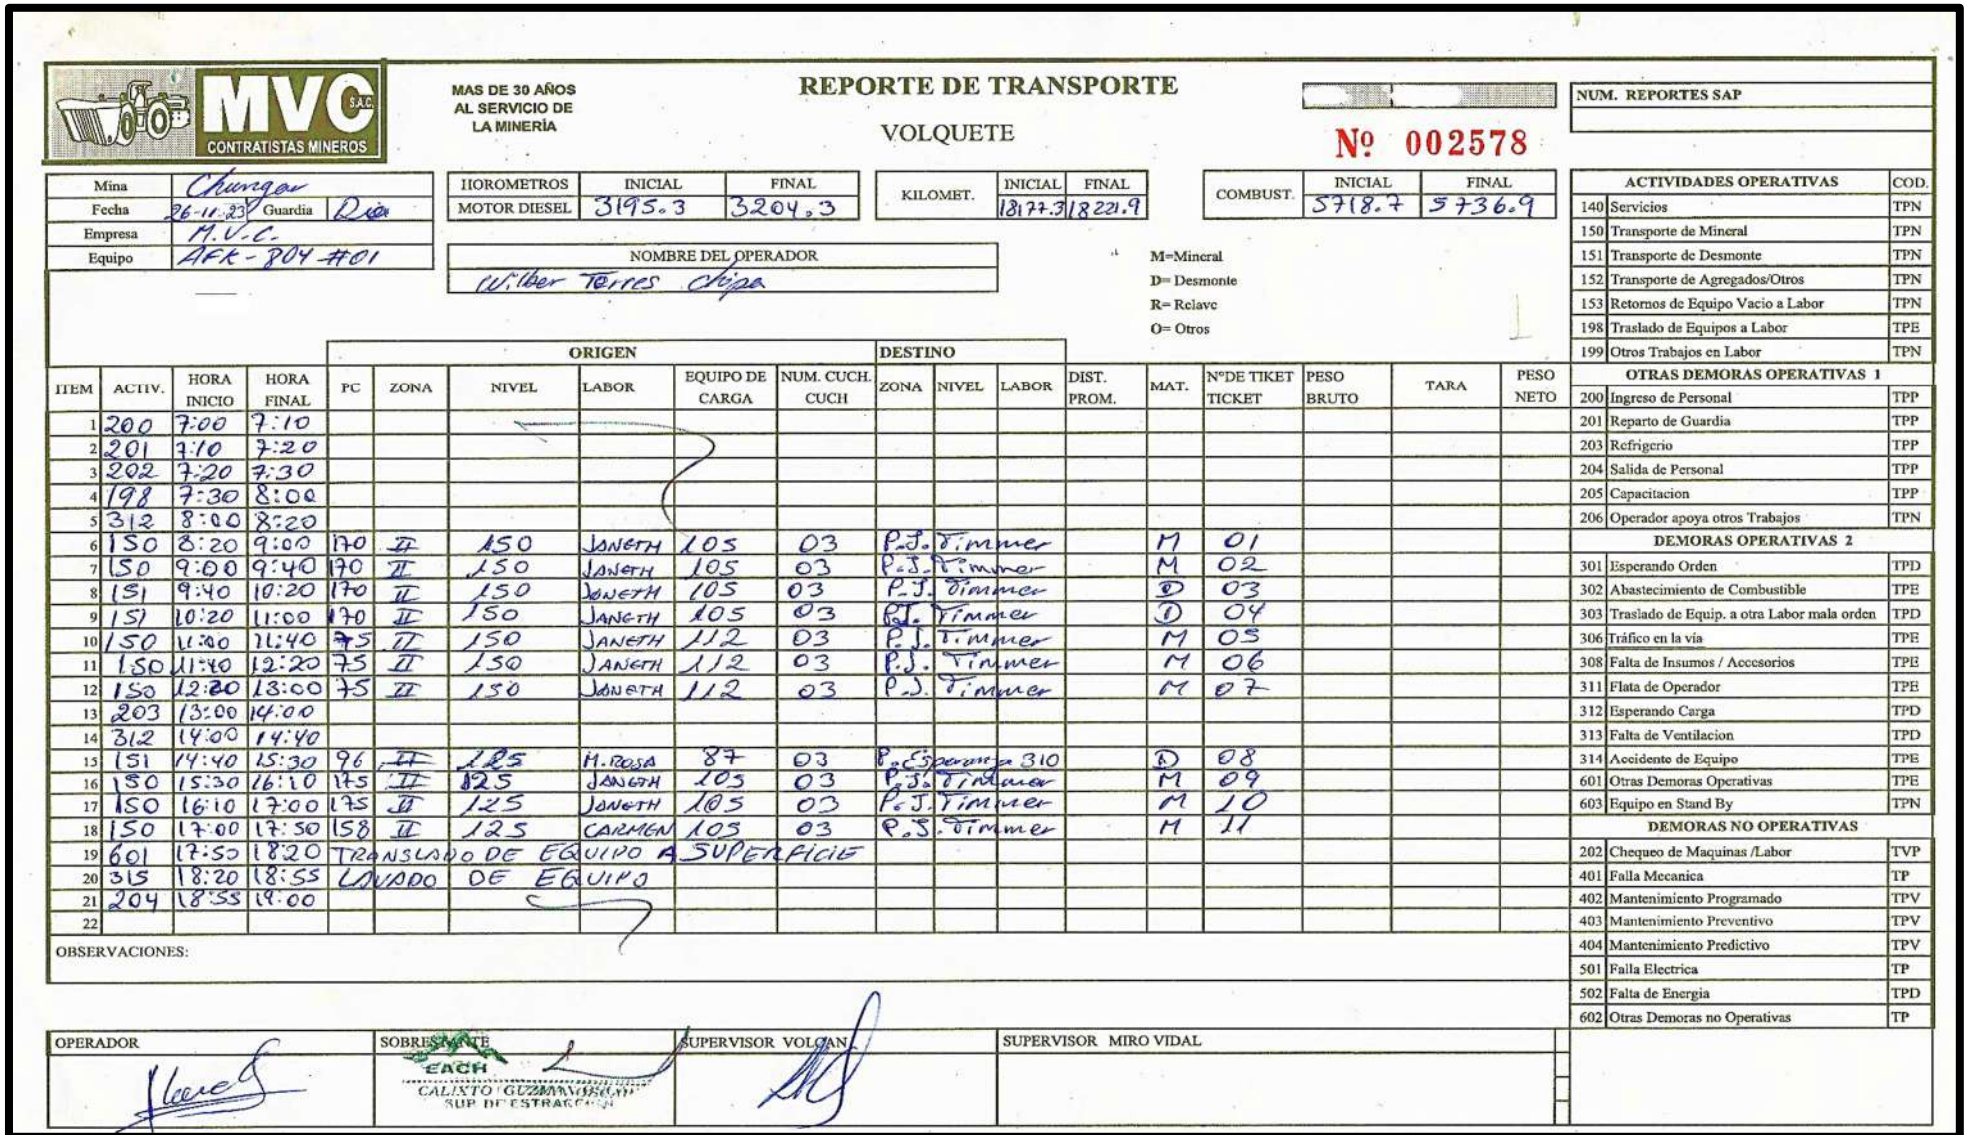 MVC S.A.C.
CONTRATISTAS MINEROS
MAS DE 30 AÑOS
AL SERVICIO DE
LA MINERÍA
REPORTE DE TRANSPORTE
VOLQUETE
Nº 002578
NUM. REPORTES SAP
Mina Chungar
Fecha 26-11-23 Guardia Dia
Empresa M.V.C.
Equipo AFK-804 #01
HOROMETROS INICIAL FINAL
MOTOR DIESEL 3195.3 3204.3
KILOMET. INICIAL FINAL
18177.3 18221.9
COMBUST. INICIAL FINAL
5718.7 5736.9
NOMBRE DEL OPERADOR
Wilber Torres Chipa
M=Mineral
D=Desmonte
R=Relave
O=Otros
ORIGEN DESTINO
ITEM ACTIV. HORA INICIO HORA FINAL PC ZONA NIVEL LABOR EQUIPO DE CARGA NUM. CUCH. CUCH ZONA NIVEL LABOR DIST. PROM. MAT. NºDE TIKET TICKET PESO BRUTO TARA PESO NETO
1 200 7:00 7:10
2 201 7:10 7:20
3 202 7:20 7:30
4 198 7:30 8:00
5 312 8:00 8:20
6 150 8:20 9:00 170 II 150 JANETH 105 03 P.J. Timmer M 01
7 150 9:00 9:40 170 II 150 JANETH 105 03 P.J. Timmer M 02
8 151 9:40 10:20 170 II 150 JANETH 105 03 P.J. Timmer D 03
9 151 10:20 11:00 170 II 150 JANETH 105 03 P.J. Timmer D 04
10 150 11:00 11:40 75 II 150 JANETH 112 03 P.J. Timmer M 05
11 150 11:40 12:20 75 II 150 JANETH 112 03 P.J. Timmer M 06
12 150 12:20 13:00 75 II 150 JANETH 112 03 P.J. Timmer M 07
13 203 13:00 14:00
14 312 14:00 14:40
15 151 14:40 15:30 96 II 125 M.ROSA 87 03 P. Esperanza 310 D 08
16 150 15:30 16:10 175 II 125 JANETH 105 03 P.J. Timmer M 09
17 150 16:10 17:00 175 II 125 JANETH 105 03 P.J. Timmer M 10
18 150 17:00 17:50 158 II 125 CARMEN 105 03 P.J. Timmer M 11
19 601 17:50 18:20 TRANSLADO DE EQUIPO A SUPERFICIE
20 315 18:20 18:55 LAVADO DE EQUIPO
21 204 18:55 19:00
22
OBSERVACIONES:
OPERADOR
SOBRESTANTE
EACH
CALIXTO GUZMAN
SUP DE ESTRACCION
SUPERVISOR VOLCAN
SUPERVISOR MIRO VIDAL
ACTIVIDADES OPERATIVAS COD.
140 Servicios TPN
150 Transporte de Mineral TPN
151 Transporte de Desmonte TPN
152 Transporte de Agregados/Otros TPN
153 Retornos de Equipo Vacio a Labor TPN
198 Traslado de Equipos a Labor TPE
199 Otros Trabajos en Labor TPN
OTRAS DEMORAS OPERATIVAS 1
200 Ingreso de Personal TPP
201 Reparto de Guardia TPP
203 Refrigerio TPP
204 Salida de Personal TPP
205 Capacitacion TPP
206 Operador apoya otros Trabajos TPN
DEMORAS OPERATIVAS 2
301 Esperando Orden TPD
302 Abastecimiento de Combustible TPE
303 Traslado de Equip. a otra Labor mala orden TPD
306 Tráfico en la via TPE
308 Falta de Insumos / Accesorios TPE
311 Flata de Operador TPE
312 Esperando Carga TPD
313 Falta de Ventilacion TPD
314 Accidente de Equipo TPE
601 Otras Demoras Operativas TPE
603 Equipo en Stand By TPN
DEMORAS NO OPERATIVAS
202 Chequeo de Maquinas /Labor TVP
401 Falla Mecanica TP
402 Mantenimiento Programado TPV
403 Mantenimiento Preventivo TPV
404 Mantenimiento Predictivo TPV
501 Falla Electrica TP
502 Falta de Energia TPD
602 Otras Demoras no Operativas TP